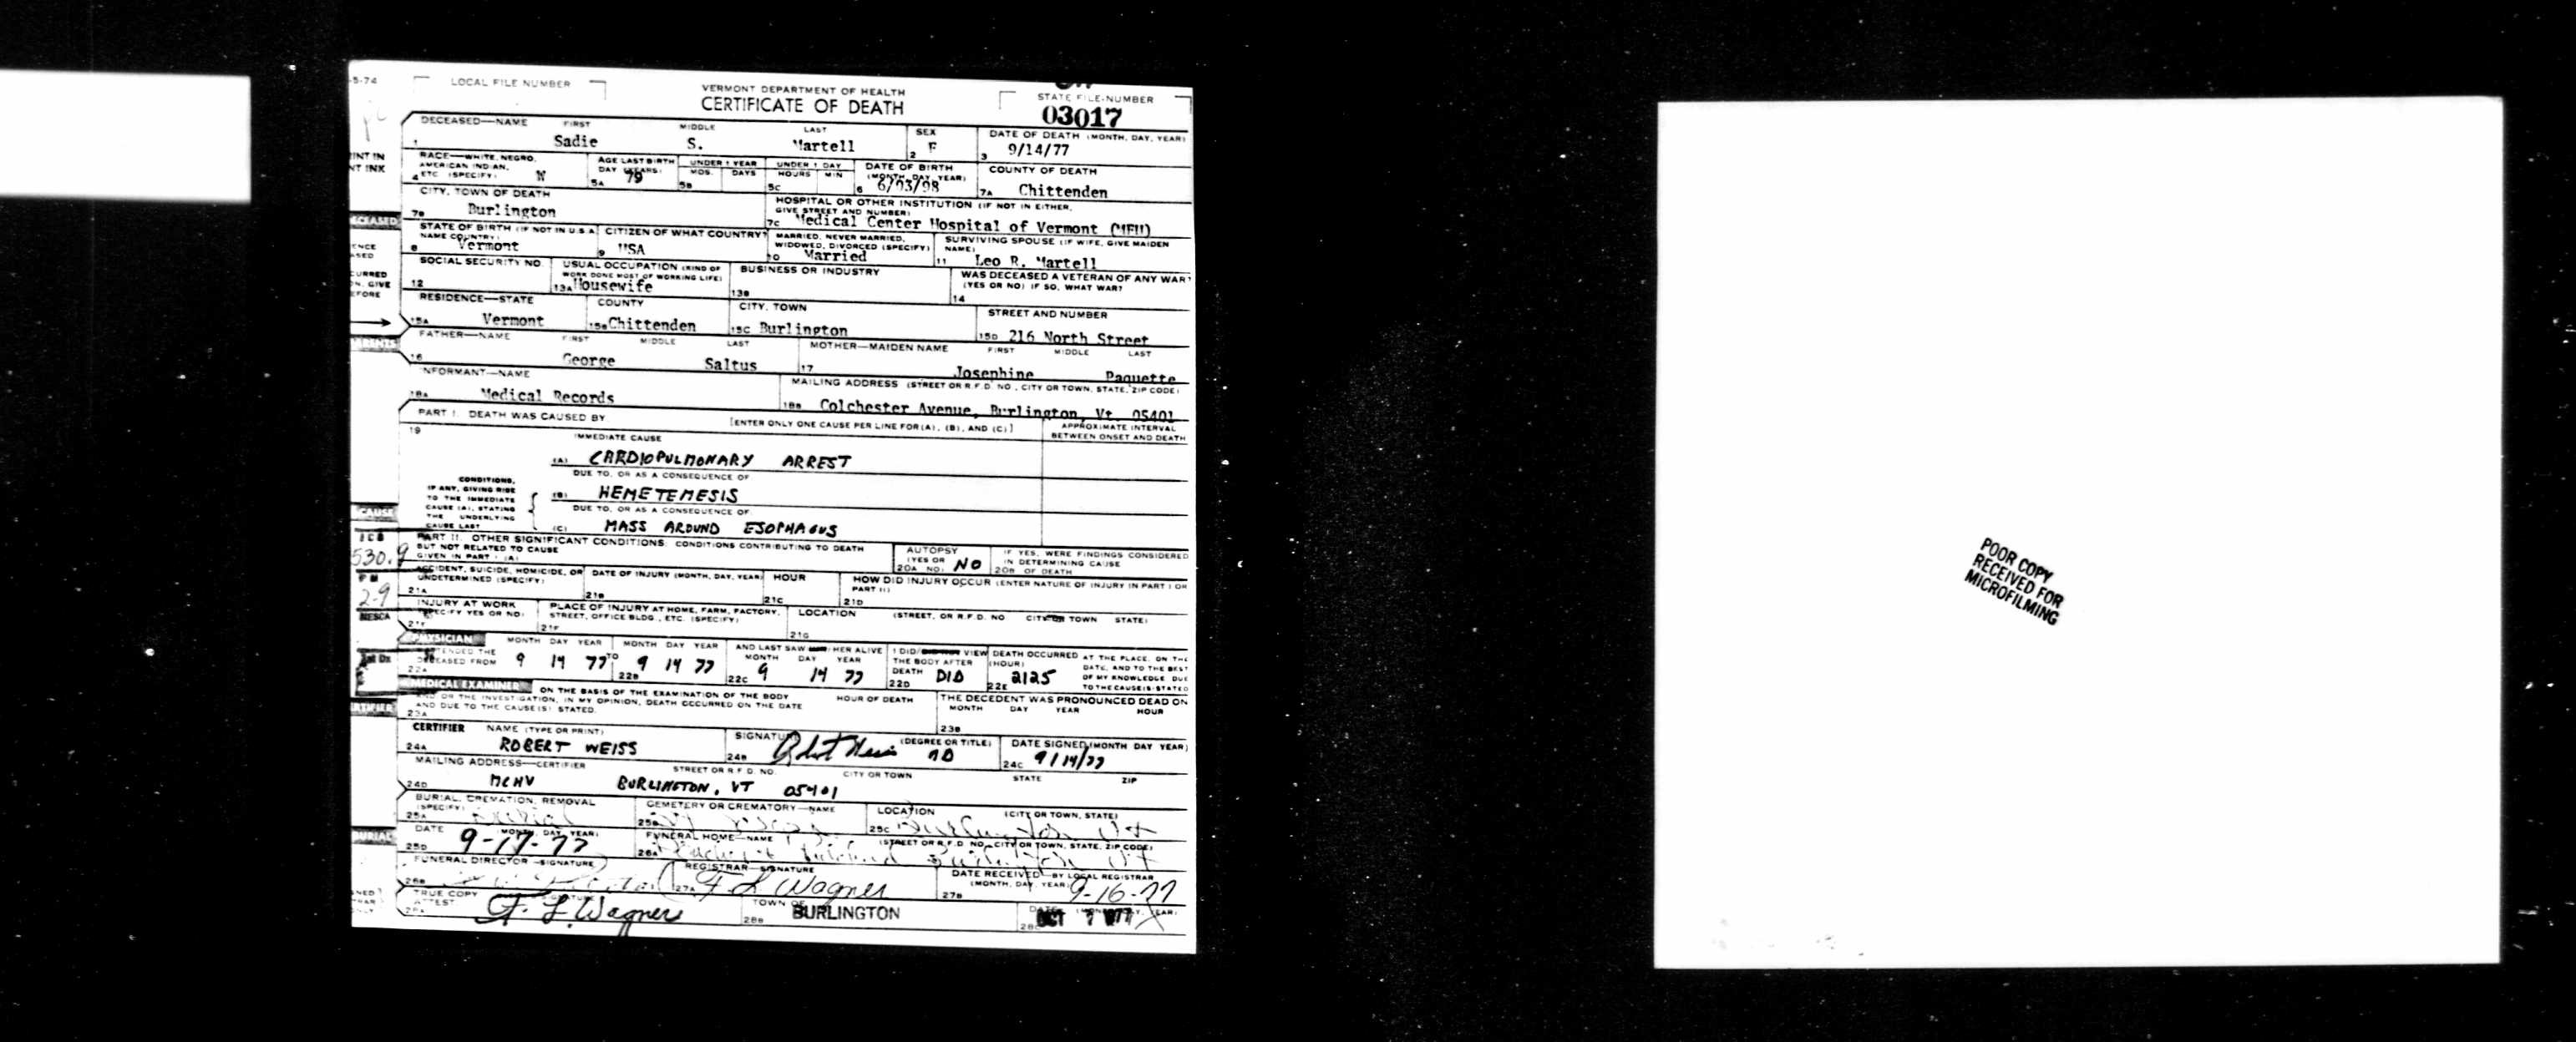 5-74 LOCAL FILE NUMBER
VERMONT DEPARTMENT OF HEALTH
CERTIFICATE OF DEATH
STATE FILE NUMBER
03017
DECEASED—NAME FIRST MIDDLE LAST SEX DATE OF DEATH (MONTH, DAY, YEAR)
1 Sadie S. Martell 2 F 3 9/14/77
RACE—WHITE, NEGRO, AMERICAN INDIAN, ETC. (SPECIFY) AGE LAST BIRTHDAY (YEARS) UNDER 1 YEAR MOS. DAYS UNDER 1 DAY HOURS MIN DATE OF BIRTH (MONTH, DAY, YEAR) COUNTY OF DEATH
4 W 5A 79 5B 5C 6 6/03/98 7A Chittenden
CITY, TOWN OF DEATH HOSPITAL OR OTHER INSTITUTION (IF NOT IN EITHER, GIVE STREET AND NUMBER)
7B Burlington 7C Medical Center Hospital of Vermont (MFU)
STATE OF BIRTH (IF NOT IN U.S.A. NAME COUNTRY) CITIZEN OF WHAT COUNTRY? MARRIED, NEVER MARRIED, WIDOWED, DIVORCED (SPECIFY) SURVIVING SPOUSE (IF WIFE, GIVE MAIDEN NAME)
8 Vermont 9 USA 10 Married 11 Leo R. Martell
SOCIAL SECURITY NO. USUAL OCCUPATION (KIND OF WORK DONE MOST OF WORKING LIFE) BUSINESS OR INDUSTRY WAS DECEASED A VETERAN OF ANY WAR? (YES OR NO) IF SO, WHAT WAR?
12 13A Housewife 13B 14
RESIDENCE—STATE COUNTY CITY, TOWN STREET AND NUMBER
15A Vermont 15B Chittenden 15C Burlington 15D 216 North Street
FATHER—NAME FIRST MIDDLE LAST MOTHER—MAIDEN NAME FIRST MIDDLE LAST
16 George Saltus 17 Josephine Paquette
INFORMANT—NAME MAILING ADDRESS (STREET OR R.F.D. NO., CITY OR TOWN, STATE, ZIP CODE)
18A Medical Records 18B Colchester Avenue, Burlington, Vt 05401
PART I. DEATH WAS CAUSED BY [ENTER ONLY ONE CAUSE PER LINE FOR (A), (B), AND (C)] APPROXIMATE INTERVAL BETWEEN ONSET AND DEATH
19 IMMEDIATE CAUSE
(A) CARDIOPULMONARY ARREST
DUE TO, OR AS A CONSEQUENCE OF
CONDITIONS, IF ANY, GIVING RISE TO THE IMMEDIATE CAUSE (A), STATING THE UNDERLYING CAUSE LAST
(B) HEMETEMESIS
DUE TO, OR AS A CONSEQUENCE OF
(C) MASS AROUND ESOPHAGUS
PART II. OTHER SIGNIFICANT CONDITIONS: CONDITIONS CONTRIBUTING TO DEATH BUT NOT RELATED TO CAUSE GIVEN IN PART I (A)
530.9
AUTOPSY (YES OR NO) 20A NO
IF YES, WERE FINDINGS CONSIDERED IN DETERMINING CAUSE OF DEATH 20B
ACCIDENT, SUICIDE, HOMICIDE, OR UNDETERMINED (SPECIFY) DATE OF INJURY (MONTH, DAY, YEAR) HOUR HOW DID INJURY OCCUR (ENTER NATURE OF INJURY IN PART I OR PART II)
2-9 21A 21B 21C 21D
INJURY AT WORK (SPECIFY YES OR NO) PLACE OF INJURY AT HOME, FARM, FACTORY, STREET, OFFICE BLDG., ETC. (SPECIFY) LOCATION (STREET, OR R.F.D. NO CITY OR TOWN STATE)
21F 21G
PHYSICIAN MONTH DAY YEAR MONTH DAY YEAR AND LAST SAW HER ALIVE MONTH DAY YEAR I DID VIEW THE BODY AFTER DEATH DEATH OCCURRED (HOUR) AT THE PLACE, ON THE DATE, AND TO THE BEST OF MY KNOWLEDGE DUE TO THE CAUSE(S) STATED
22A ATTENDED THE DECEASED FROM 9 14 77 TO 22B 9 14 77 22C 9 14 77 22D DID 22E 2125
MEDICAL EXAMINER ON THE BASIS OF THE EXAMINATION OF THE BODY AND OR THE INVESTIGATION, IN MY OPINION, DEATH OCCURRED ON THE DATE AND DUE TO THE CAUSE(S) STATED. HOUR OF DEATH THE DECEDENT WAS PRONOUNCED DEAD ON MONTH DAY YEAR HOUR
23A 23B
CERTIFIER NAME (TYPE OR PRINT) SIGNATURE (DEGREE OR TITLE) DATE SIGNED (MONTH DAY YEAR)
24A ROBERT WEISS 24B Robert Weiss MD 24C 9/14/77
MAILING ADDRESS—CERTIFIER STREET OR R.F.D. NO. CITY OR TOWN STATE ZIP
24D MCHV BURLINGTON, VT 05401
BURIAL, CREMATION, REMOVAL (SPECIFY) CEMETERY OR CREMATORY—NAME LOCATION (CITY OR TOWN, STATE)
25A Burial 25B 25C Burlington Vt
DATE (MONTH, DAY, YEAR) FUNERAL HOME—NAME (STREET OR R.F.D. NO., CITY OR TOWN, STATE, ZIP CODE)
25D 9-17-77 26A Burlington Vt
FUNERAL DIRECTOR—SIGNATURE REGISTRAR—SIGNATURE DATE RECEIVED BY LOCAL REGISTRAR (MONTH, DAY, YEAR)
26B 27A F L Wagner 27B 9-16-77
TRUE COPY ATTEST: SIGNATURE TOWN OF DATE (MONTH, DAY, YEAR)
28A F. L. Wagner 28B BURLINGTON 28C OCT 7 1977
POOR COPY
RECEIVED FOR
MICROFILMING